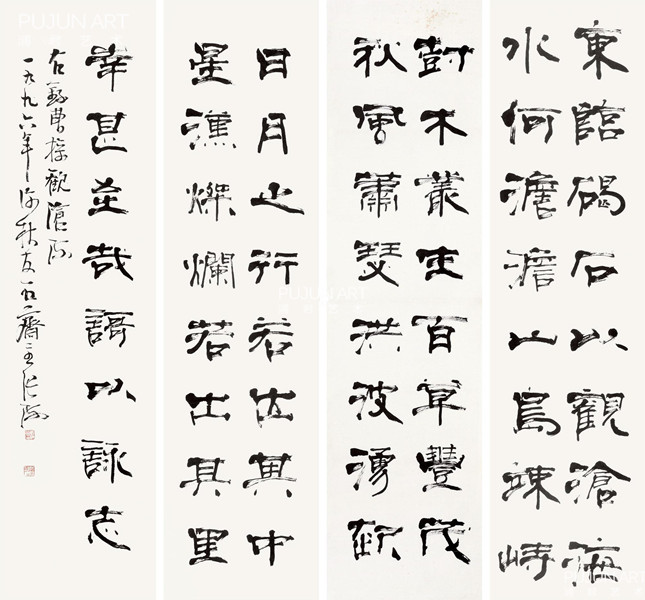 PUJUN ART
東臨碣石以觀滄海
水何澹澹山島竦峙
尌木叢生百草豐茂
秋風蕭瑟洪波湧起
日月之行若出其中
星漢燦爛若出其里
幸甚至哉謌以詠志
右錄曹操觀滄海
一九九六年深秋友石齋主張海
PUJUN ART